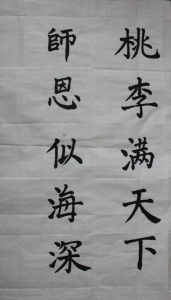 桃李满天下
師恩似海深